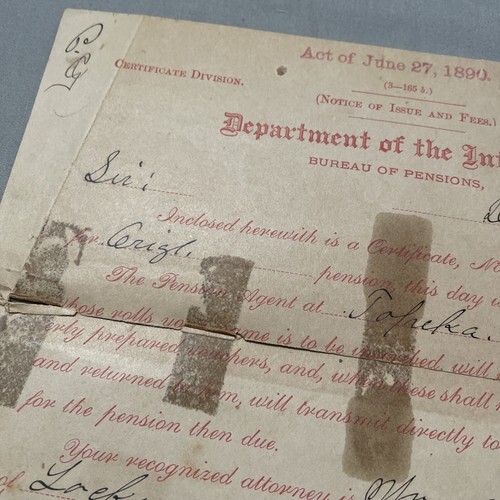 Act of June 27, 1890.
Certificate Division.
(3—165 b.)
(Notice of Issue and Fees.)
Department of the
BUREAU OF PENSIONS,
Sir:
Inclosed herewith is a Certificate,
for Origl. pension this day
The Pension Agent at Topeka.
whose rolls name is to be inscribed, will
prepared vouchers, and, when these shall
and returned to him, will transmit directly to
for the pension then due.
Your recognized attorney is